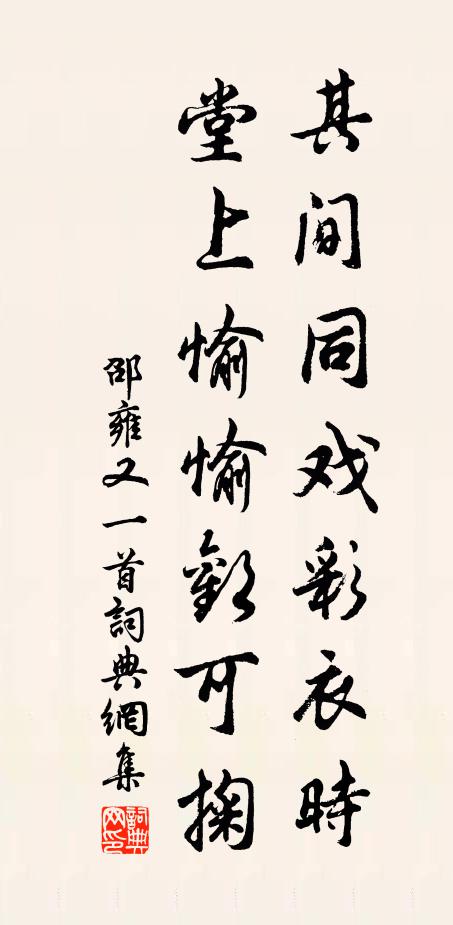 其間同戏彩衣時
堂上愉愉歡可掬
邵雍又一首詞典網集
詞典网印